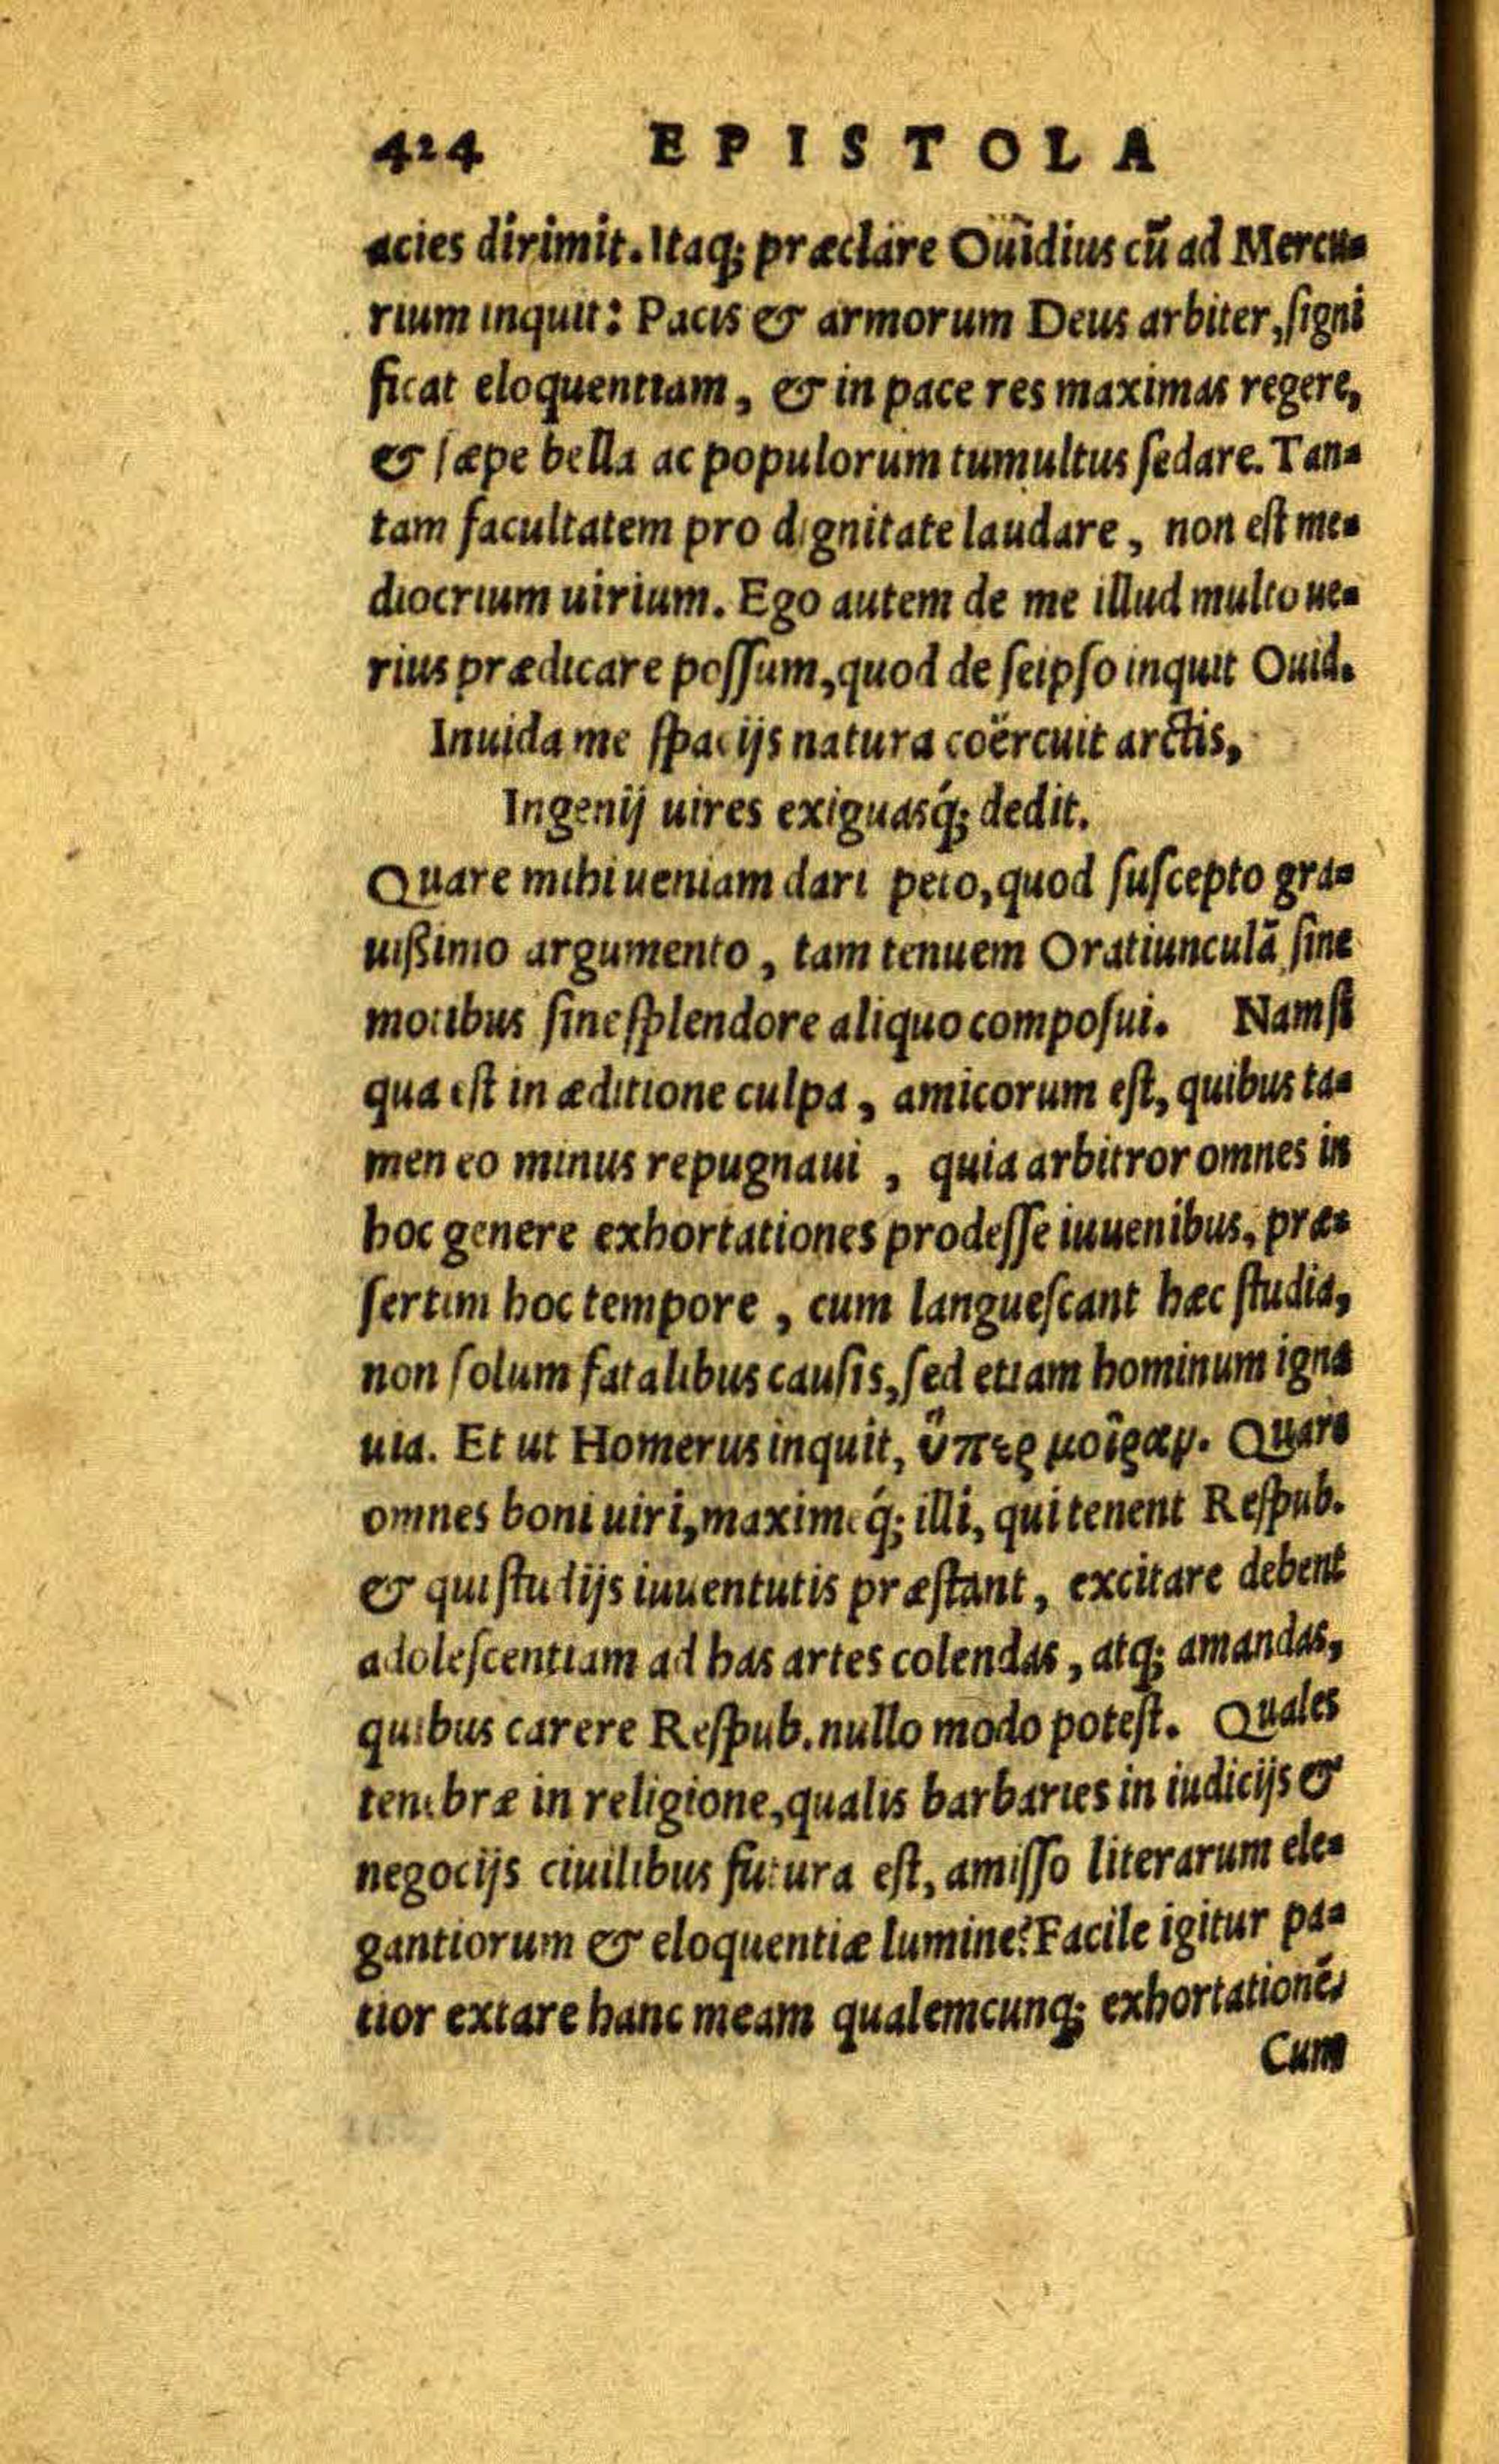 424 EPISTOLA
acies dirimit. Itaq; præclare Ouidius cũ ad Mercu-
rium inquit: Pacis & armorum Deus arbiter, signi
ficat eloquentiam, & in pace res maximas regere,
& sæpe bella ac populorum tumultus sedare. Tan-
tam facultatem pro dignitate laudare, non est me-
diocrium uirium. Ego autem de me illud multo ue-
rius prædicare possum, quod de seipso inquit Ouid.
Inuida me spacijs natura coërcuit arctis,
Ingenij uires exiguasq́; dedit.
Quare mihi ueniam dari peto, quod suscepto gra-
uißimo argumento, tam tenuem Oratiunculã sine
motibus sine splendore aliquo composui. Nam si
qua est in æditione culpa, amicorum est, quibus ta-
men eo minus repugnaui, quia arbitror omnes in
hoc genere exhortationes prodesse iuuenibus, præ-
sertim hoc tempore, cum languescant hæc studia,
non solum fatalibus causis, sed etiam hominum igna
uia. Et ut Homerus inquit, ὕπερ μοῖραν. Quare
omnes boni uiri, maximeq́; illi, qui tenent Respub.
& qui studijs iuuentutis præstant, excitare debent
adolescentiam ad has artes colendas, atq; amandas,
quibus carere Respub. nullo modo potest. Quales
tenebræ in religione, qualis barbaries in iudicijs &
negocijs ciuilibus futura est, amisso literarum ele-
gantiorum & eloquentiæ lumine? Facile igitur pa-
tior extare hanc meam qualemcunq; exhortationẽ,
Cum